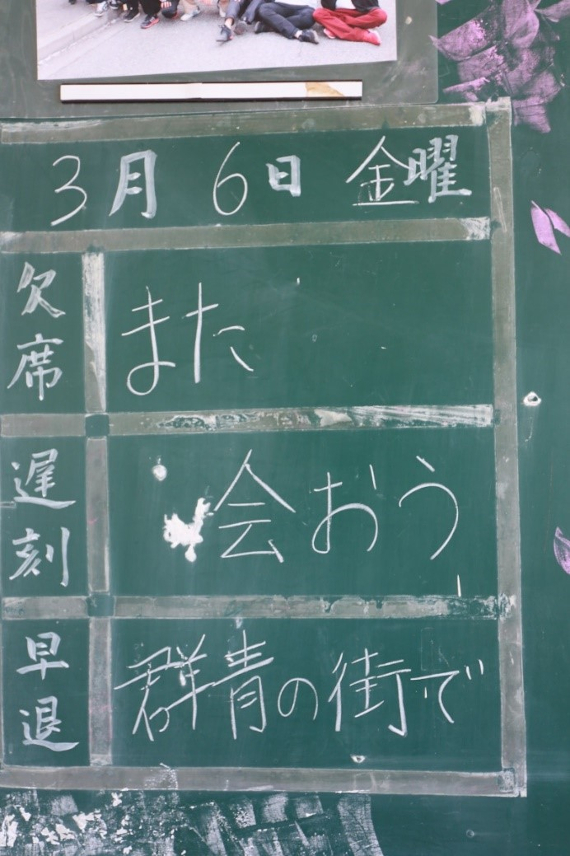 3月6日 金曜
欠席 また
遅刻 会おう
早退 群青の街で